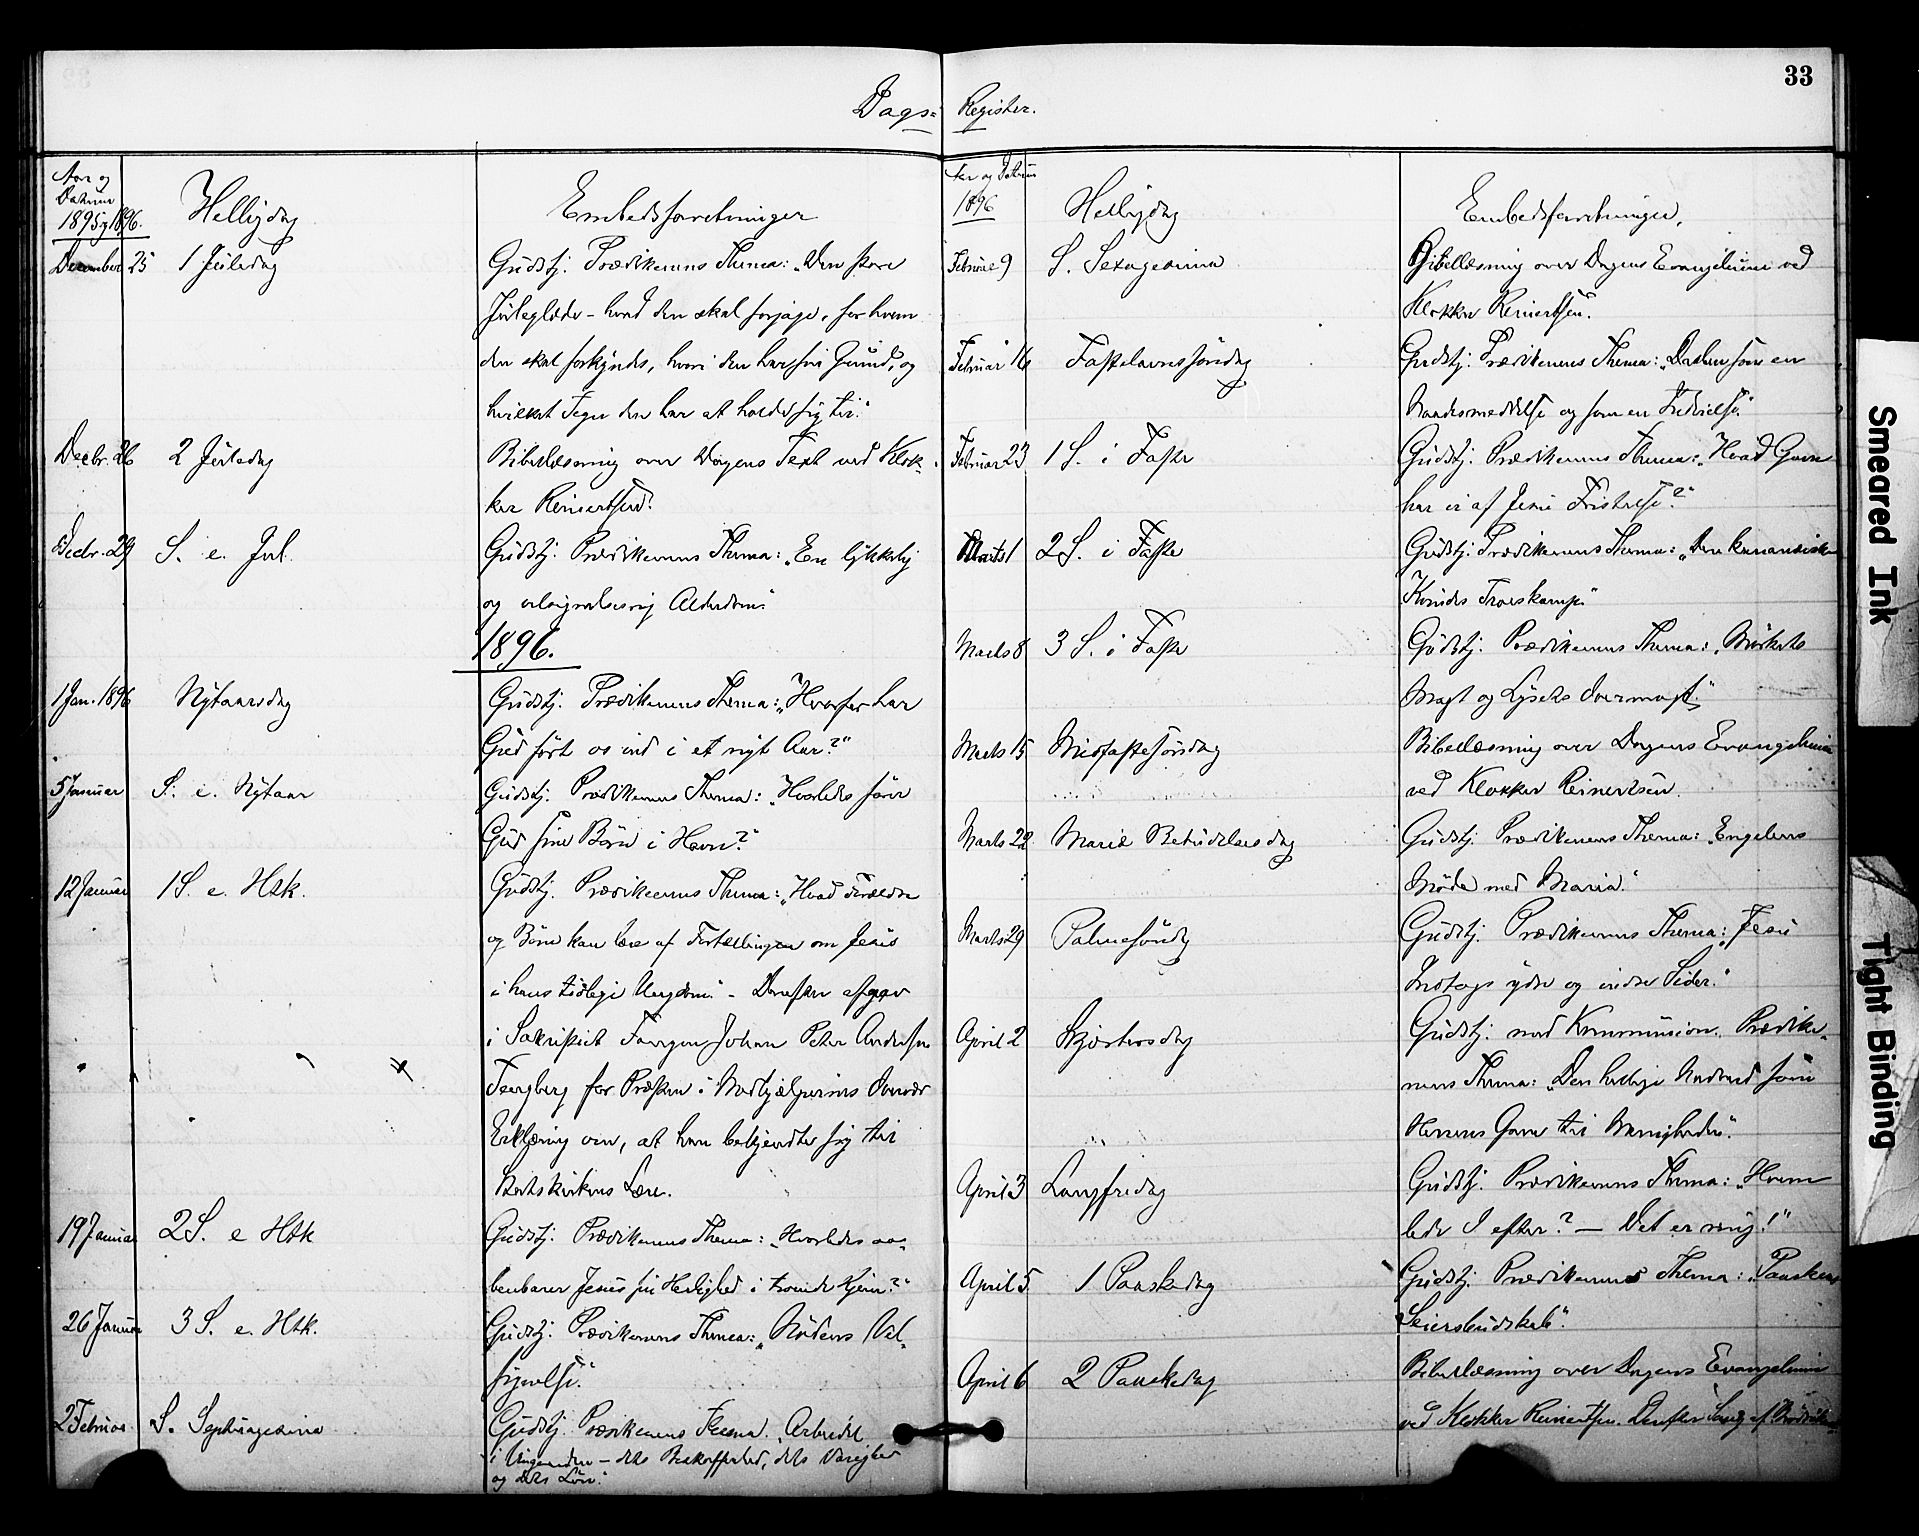 33
Dags-Register.
Aar og
Datum
1895 og 1896.
Helligdag
Embedsforretninger
December 25
1 Juledag
Gudstj. Prædikenens Thema: „Den store
Juleglæde – hvad den skal forjage, for hvem
den skal forkyndes, hvori den har sin Grund, og
hvilket Tegn den har at holde sig til."
Decbr. 26
2 Juledag
Bibellæsning over Dagens Text ved Klok-
ker Reinertsen.
Decbr. 29
S. e. Jul.
Gudstj. Prædikenens Thema: „En lykkelig
og velsignelsesrig Alderdom."
1896.
1 Jan. 1896
Nytaarsdag
Gudstj. Prædikenens Thema: „Hvorfor har
Gud ført os ind i et nyt Aar?"
5 Januar
S. e. Nytaar
Gudstj. Prædikenens Thema: „Hvorledes fører
Gud sine Børn i Havn?"
12 Januar
1 S. e. H3k.
Gudstj. Prædikenens Thema: „Hvad Forældre
og Børn kan lære af Fortællingen om Jesus
i hans tidlige Ungdom." – Derefter afgav
i Sakristiet Johan Peter Andersen
for Præsten i Medhjælpernes Overvær
Erklæring om, at han bekjendte sig til
Statskirkens Lære.
19 Januar
2 S. e H3k
Gudstj. Prædikenens Thema: „Hvorledes aa-
benbarer Jesus sin Herlighed i troende Hjem?"
26 Januar
3 S. e. H3k.
Gudstj. Prædikenens Thema: „Nødens Vel-
signelse."
2 Februar
S. Septuagesima
Gudstj. Prædikenens Thema. „Arbeidet
i Vingaarden – dets Beskaffenhed, dets Varighed
og dets Løn."
Aar og Datum
1896
Helligdag
Embedsforretninger.
Februar 9
S. Sexagesima
Bibellæsning over Dagens Evangelium ved
Klokker Reinertsen.
Februar 16
Fastelavnssöndag
Gudstj. Prædikenens Thema: „Daaben som en
Naadesmeddelse og som en Indvielse."
Februar 23
1 S. i Faste
Gudstj. Prædikenens Thema: „Hvad Gavn
har vi af Jesu Fristelse?"
Marts 1
2 S. i Faste
Gudstj. Prædikenens Thema: „Den kananæiske
Kvindes Troeskamp."
Marts 8
3 S. i Faste
Gudstj. Prædikenens Thema: „Mørkets
Magt og Lysets Overmagt."
Marts 15
Midfastesöndag
Bibellæsning over Dagens Evangelium
ved Klokker Reinertsen.
Marts 22
Mariæ Bebudelsesdag
Gudstj. Prædikenens Thema: „Engelens
Møde med Maria."
Marts 29
Palmesöndg
Gudstj. Prædikenens Thema: „Jesu
Indtogs ydre og indre Sider."
April 2
Skjærtorsdag
Gudstj. med Kommunion. Prædike-
nens Thema: „Den hellige Nadverd som
Herrens Gave til Menigheden".
April 3
Langfredag
Gudstj. Prædikenens Thema: „Hvem
lede I efter? – Det er mig!"
April 5
1 Paaskedag
Gudstj. Prædikenens Thema: „Paaskens
Seiersbudskab".
April 6
2 Paaskedag
Bibellæsning over Dagens Evangelium
ved Klokker Reinertsen. Derefter Sang af
Smeared Ink
Tight Binding